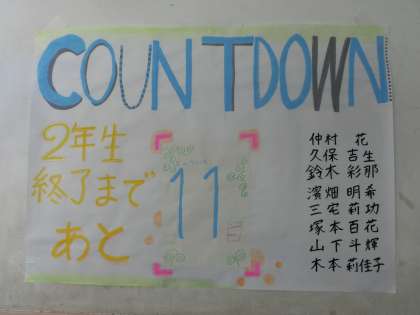 COUNTDOWN
2年生
終了まで
あと
11
仲村 花
久保 吉生
鈴木 彩那
濱畑 明希
三宅 莉功
塚本 百花
山下 斗輝
木本 莉佳子